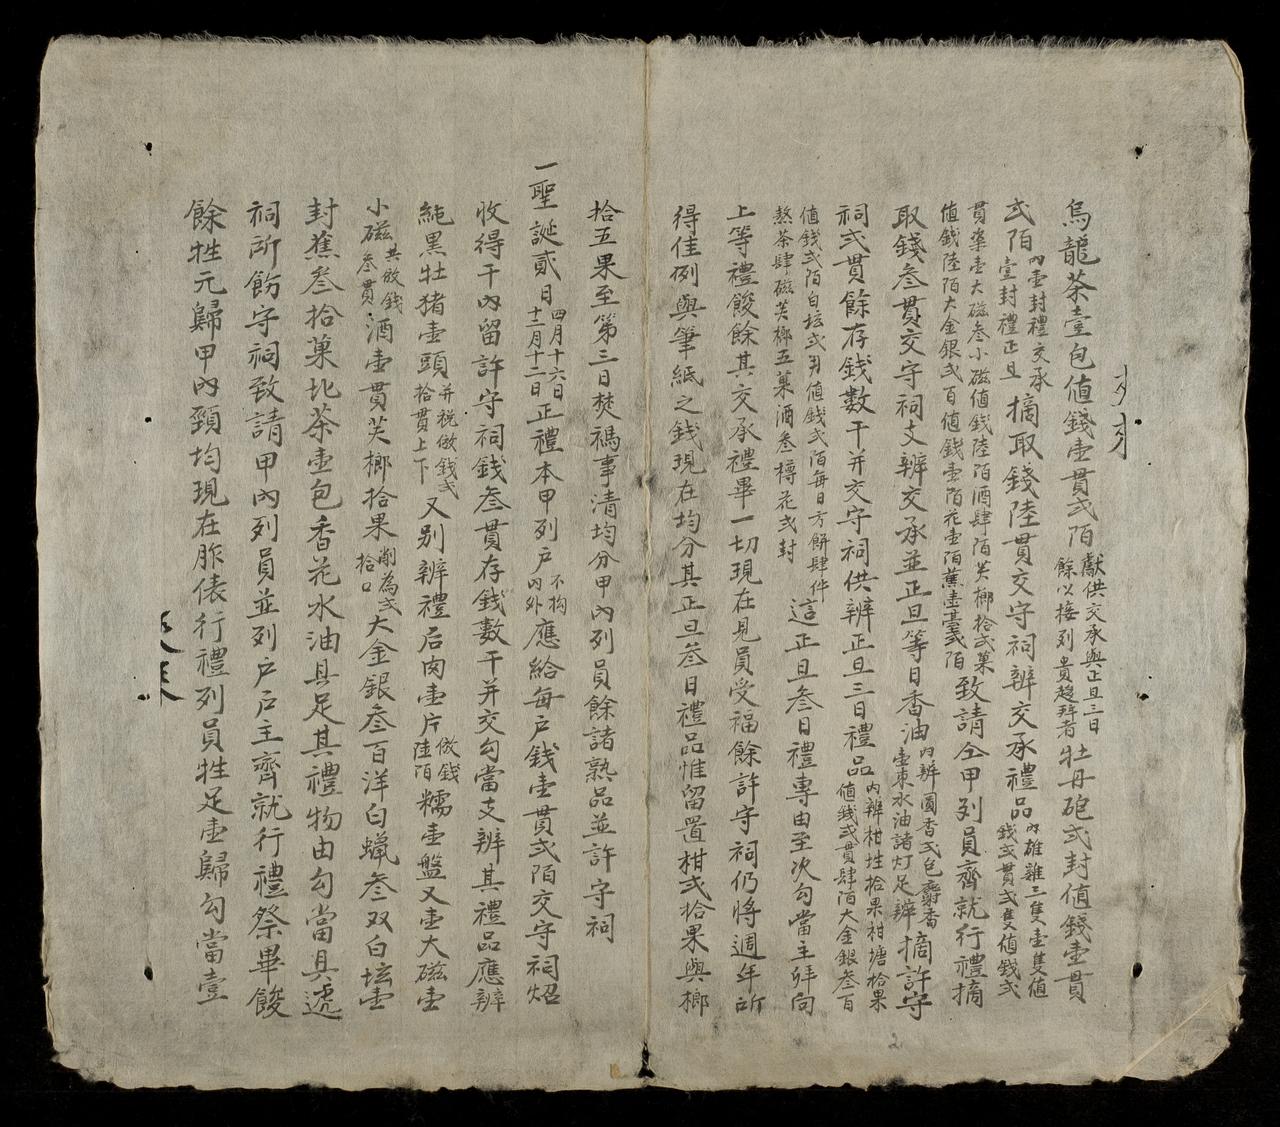 烏龍茶壹包值錢壺貫弍陌獻供交承與正旦三日餘以接列貴趨拜者牡丹砲弍封值錢壺貫
弍陌內壺封禮交承壹封禮正旦摘取錢陸貫交守祠辨交承禮品內雄雞三隻壺隻值錢弍貫弍隻值錢弍
貫粢壺大磁叁小磁值錢陸陌酒肆陌芙榔拾弍菓值錢陸陌大金銀弍百值錢壺陌花壺陌蕉壺臺弍陌致請仝甲列員齊就行禮摘
取錢叁貫交守祠支辨交承並正旦等日香油內辨圓香弍包麝香壺束水油諸灯足辨摘許守
祠弍貫餘存錢數干并交守祠供辨正旦三日禮品內辨柑拾果柑塘拾果值錢弍貫肆陌大金銀叁百
值錢弍陌白坛弍刄值錢弍陌每日方餅肆件熬茶肆磁芙榔五菓酒叁樽花弍封這正旦叁日禮專由至次勾當主拜向
上等禮餕餘其交承禮畢一切現在見員受福餘許守祠仍將週年所
得佳例與筆紙之錢現在均分其正旦叁日禮品惟留置柑弍拾果與榔
拾五果至第三日焚禡事清均分甲內列員餘諸熟品並許守祠
一聖誕貳日四月十六日十二月十二日正禮本甲列户不拘內外應給每户錢壺貫弍陌交守祠炤
收得干內留許守祠錢叁貫存錢數干并交勾當支辨其禮品應辨
純黑牡猪壺頭并税傲錢弍拾貫上下又別辨禮后肉壺片傲錢陸陌糯壺盤又壺大磁壺
小磁共傲錢叁貫酒壺貫芙榔拾果削為弍拾口大金銀叁百洋白蠟叁双白坛壺
封蕉叁拾菓北茶壺包香花水油具足其禮物由勾當具遞
祠所飭守祠致請甲內列員並列户户主齊就行禮祭畢餕
餘牲元歸甲內頸均現在胙俵行禮列員牲足壺歸勾當壹